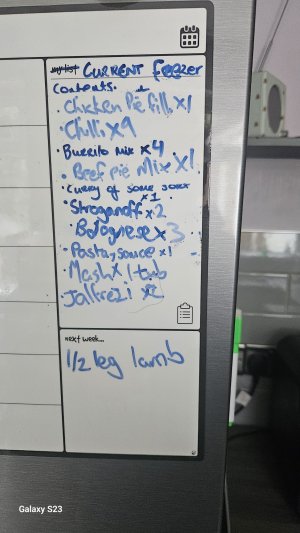 my list CURRENT freezer
Contents.
• Chicken Pie fill x1
• Chilli x9
• Burrito mix x4
• Beef pie Mix x1
• Curry of some sort
x1
• Stroganoff x2
• Bolognese x3
• Pasta, sauce x1
• Mash x 1 tub
• Jalfrezi x2
next week...
1/2 leg lamb
Galaxy S23